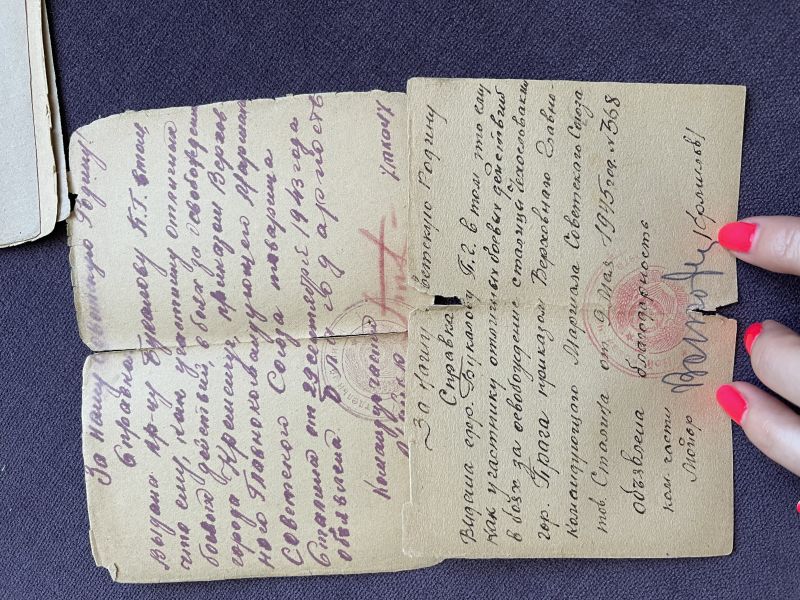 За нашу советскую Родину!
Справка
Выдана кр-цу Букалову П.Г. в том,
что ему, как участнику отличных
боевых действий, в боях за освобождение
города Кременчуг, приказом Верхов
ного Главнокомандующего Маршала
Советского Союза товарища
Сталина от 29 сентября 1943 года
объявлена Благодарность
Командир части
За нашу советскую Родину
Справка
Выдана ефр. Букалову П.Г. в том, что ему
как участнику отличных боевых действий
в боях за освобождение столицы Чехословакии
гор. Прага приказом Верховного Главно-
командующего Маршала Советского Союза
тов. Сталина от 9 мая 1945 год. N 368
объявлена благодарность
ком. части
Майор